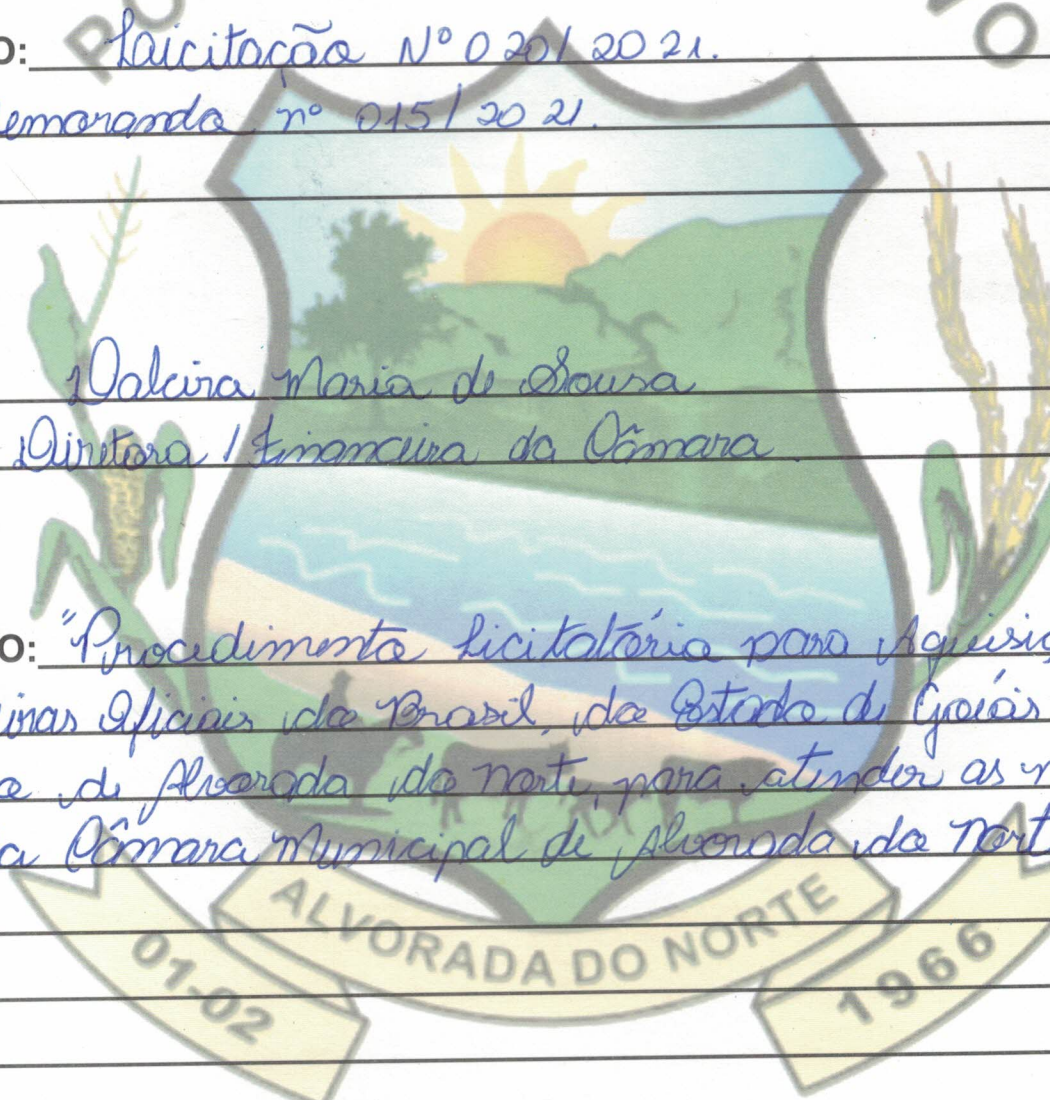 O: Laicitação Nº 020/2021.
emorando nº 015/2021.
Dalcira Maria de Sousa
Diretora / Financeira da Câmara.
O: "Procedimento Licitatório para Aquisiç
iras Oficiais do Brasil, do Estado de Goiás
de Alvorada do Norte, para atender as n
a Câmara Municipal de Alvorada do Nort
ALVORADA DO NORTE
01-02
1966